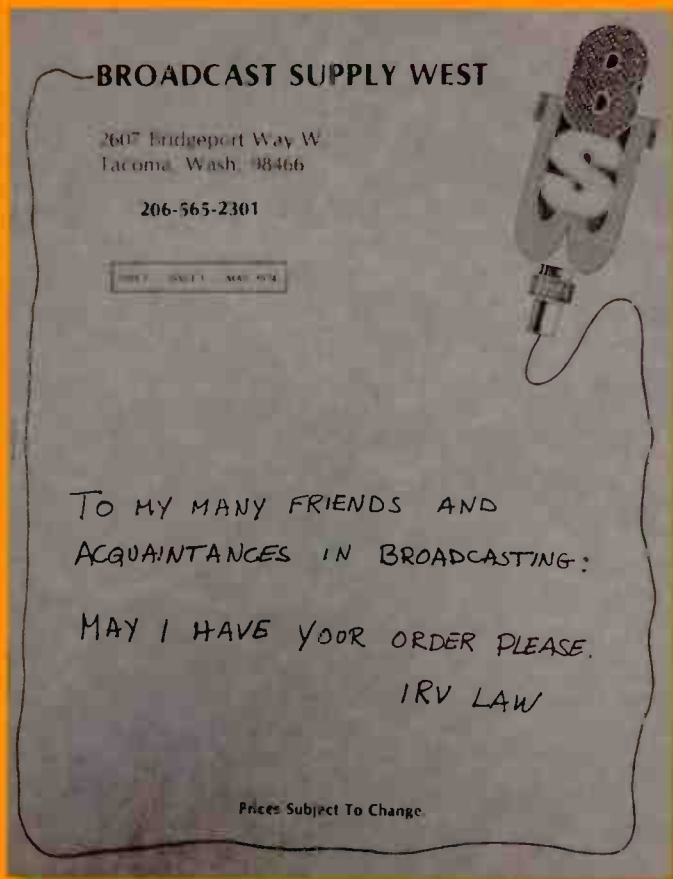 BROADCAST SUPPLY WEST
2607 Bridgeport Way W
Tacoma, Wash. 98466
206-565-2301
TO MY MANY FRIENDS AND
ACQUAINTANCES IN BROADCASTING:
MAY I HAVE YOOR ORDER PLEASE.
IRV LAW
Prices Subject To Change